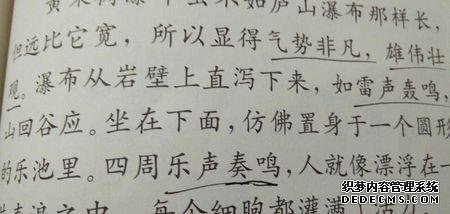 黄果树瀑布虽不如庐山瀑布那样长，
但远比它宽，所以显得气势非凡，雄伟壮
观。瀑布从岩壁上直泻下来，如雷声轰鸣，
山回谷应。坐在下面，仿佛置身于一个圆形
的乐池里。四周乐声奏鸣，人就像漂浮在一
声浪之中，每个细胞都灌满
织梦内容管理系统
DEDECMS.COM